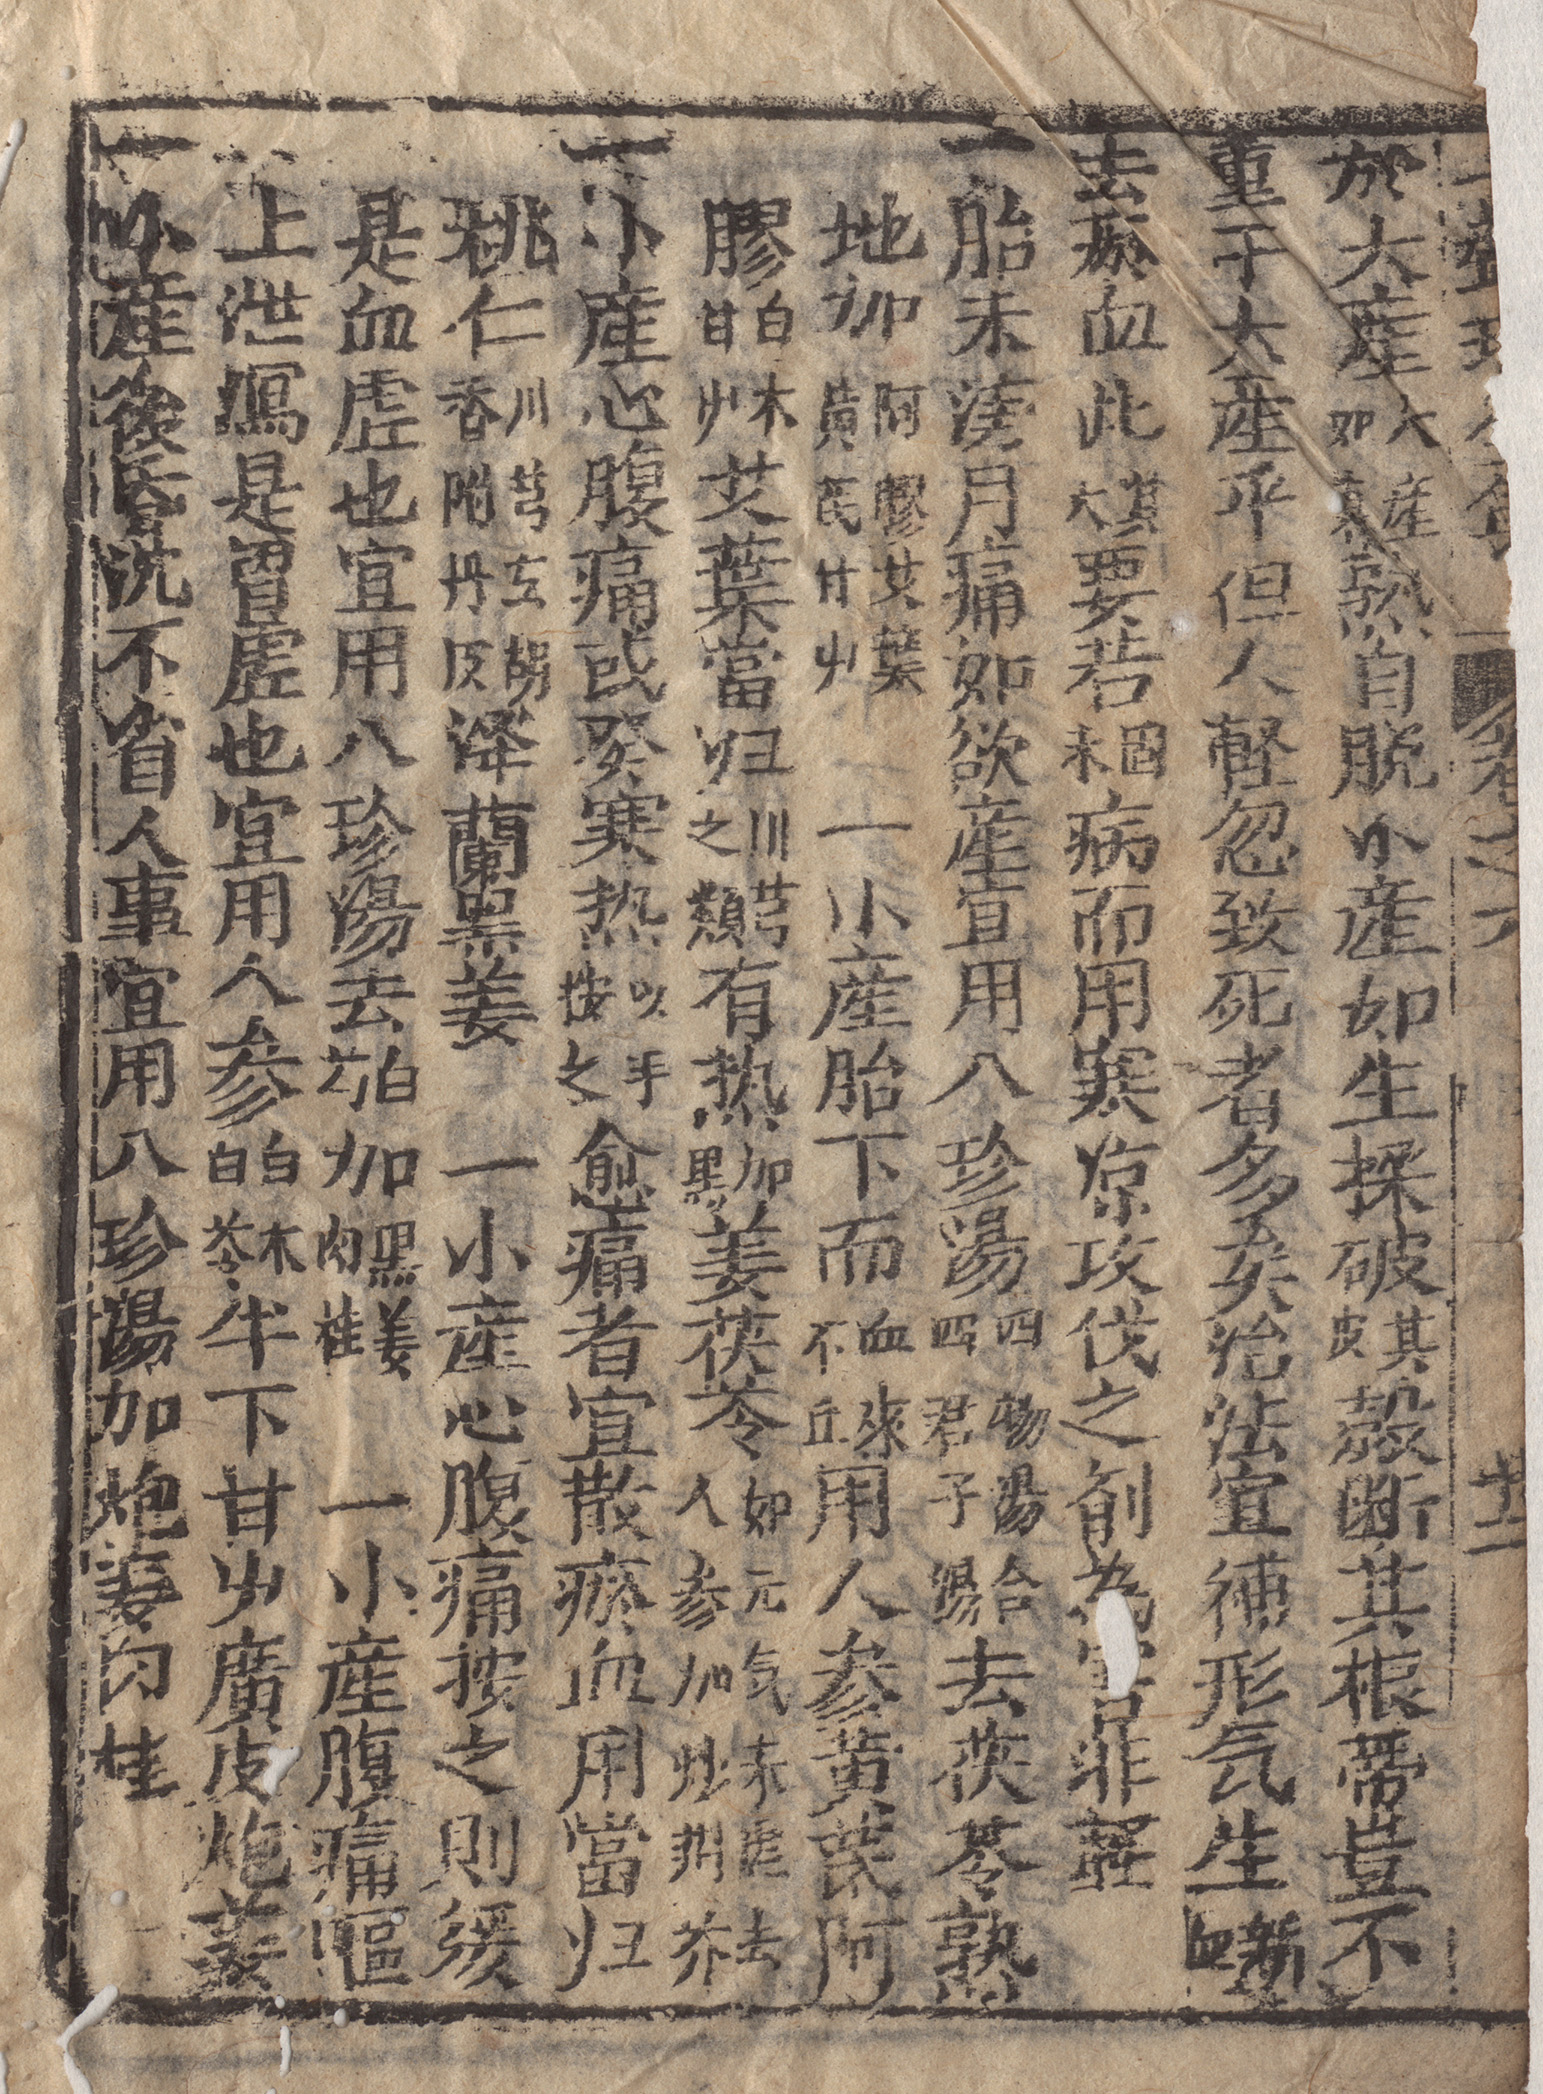 於大産大産如熟自脱小産如生採破其皮殼断其根蒂豈不
重于大産乎但人輕忽致死者多矣治法宜補形气生新血
去瘀血此其大要若因未病而用寒凉攻伐之劑為害非輕
一胎未満月痛如欲産宜用八珍湯四物湯合四君子湯去茯苓熟
地加阿膠艾葉黄芪甘艸 一小産胎下而血來不止用人参黄芪阿
膠白术甘艸艾葉當归川芎之類有热加黑姜茯苓如元气未虚去人参加炒荆芥
一小産心腹痛或癸寒热以手按之愈痛者宜散瘀血用當归
桃仁川芎玄胡香附丹皮澤蘭黑姜 一小産心腹痛按之則緩
是血虚也宜用八珍湯去白芍加黑姜肉桂 一小産腹痛嘔
上泄瀉是胃虚也宜用人参白术白苓半下甘艸廣皮炮姜
一小産後昏沈不省人事宜用八珍湯加炮姜肉桂
卷之六